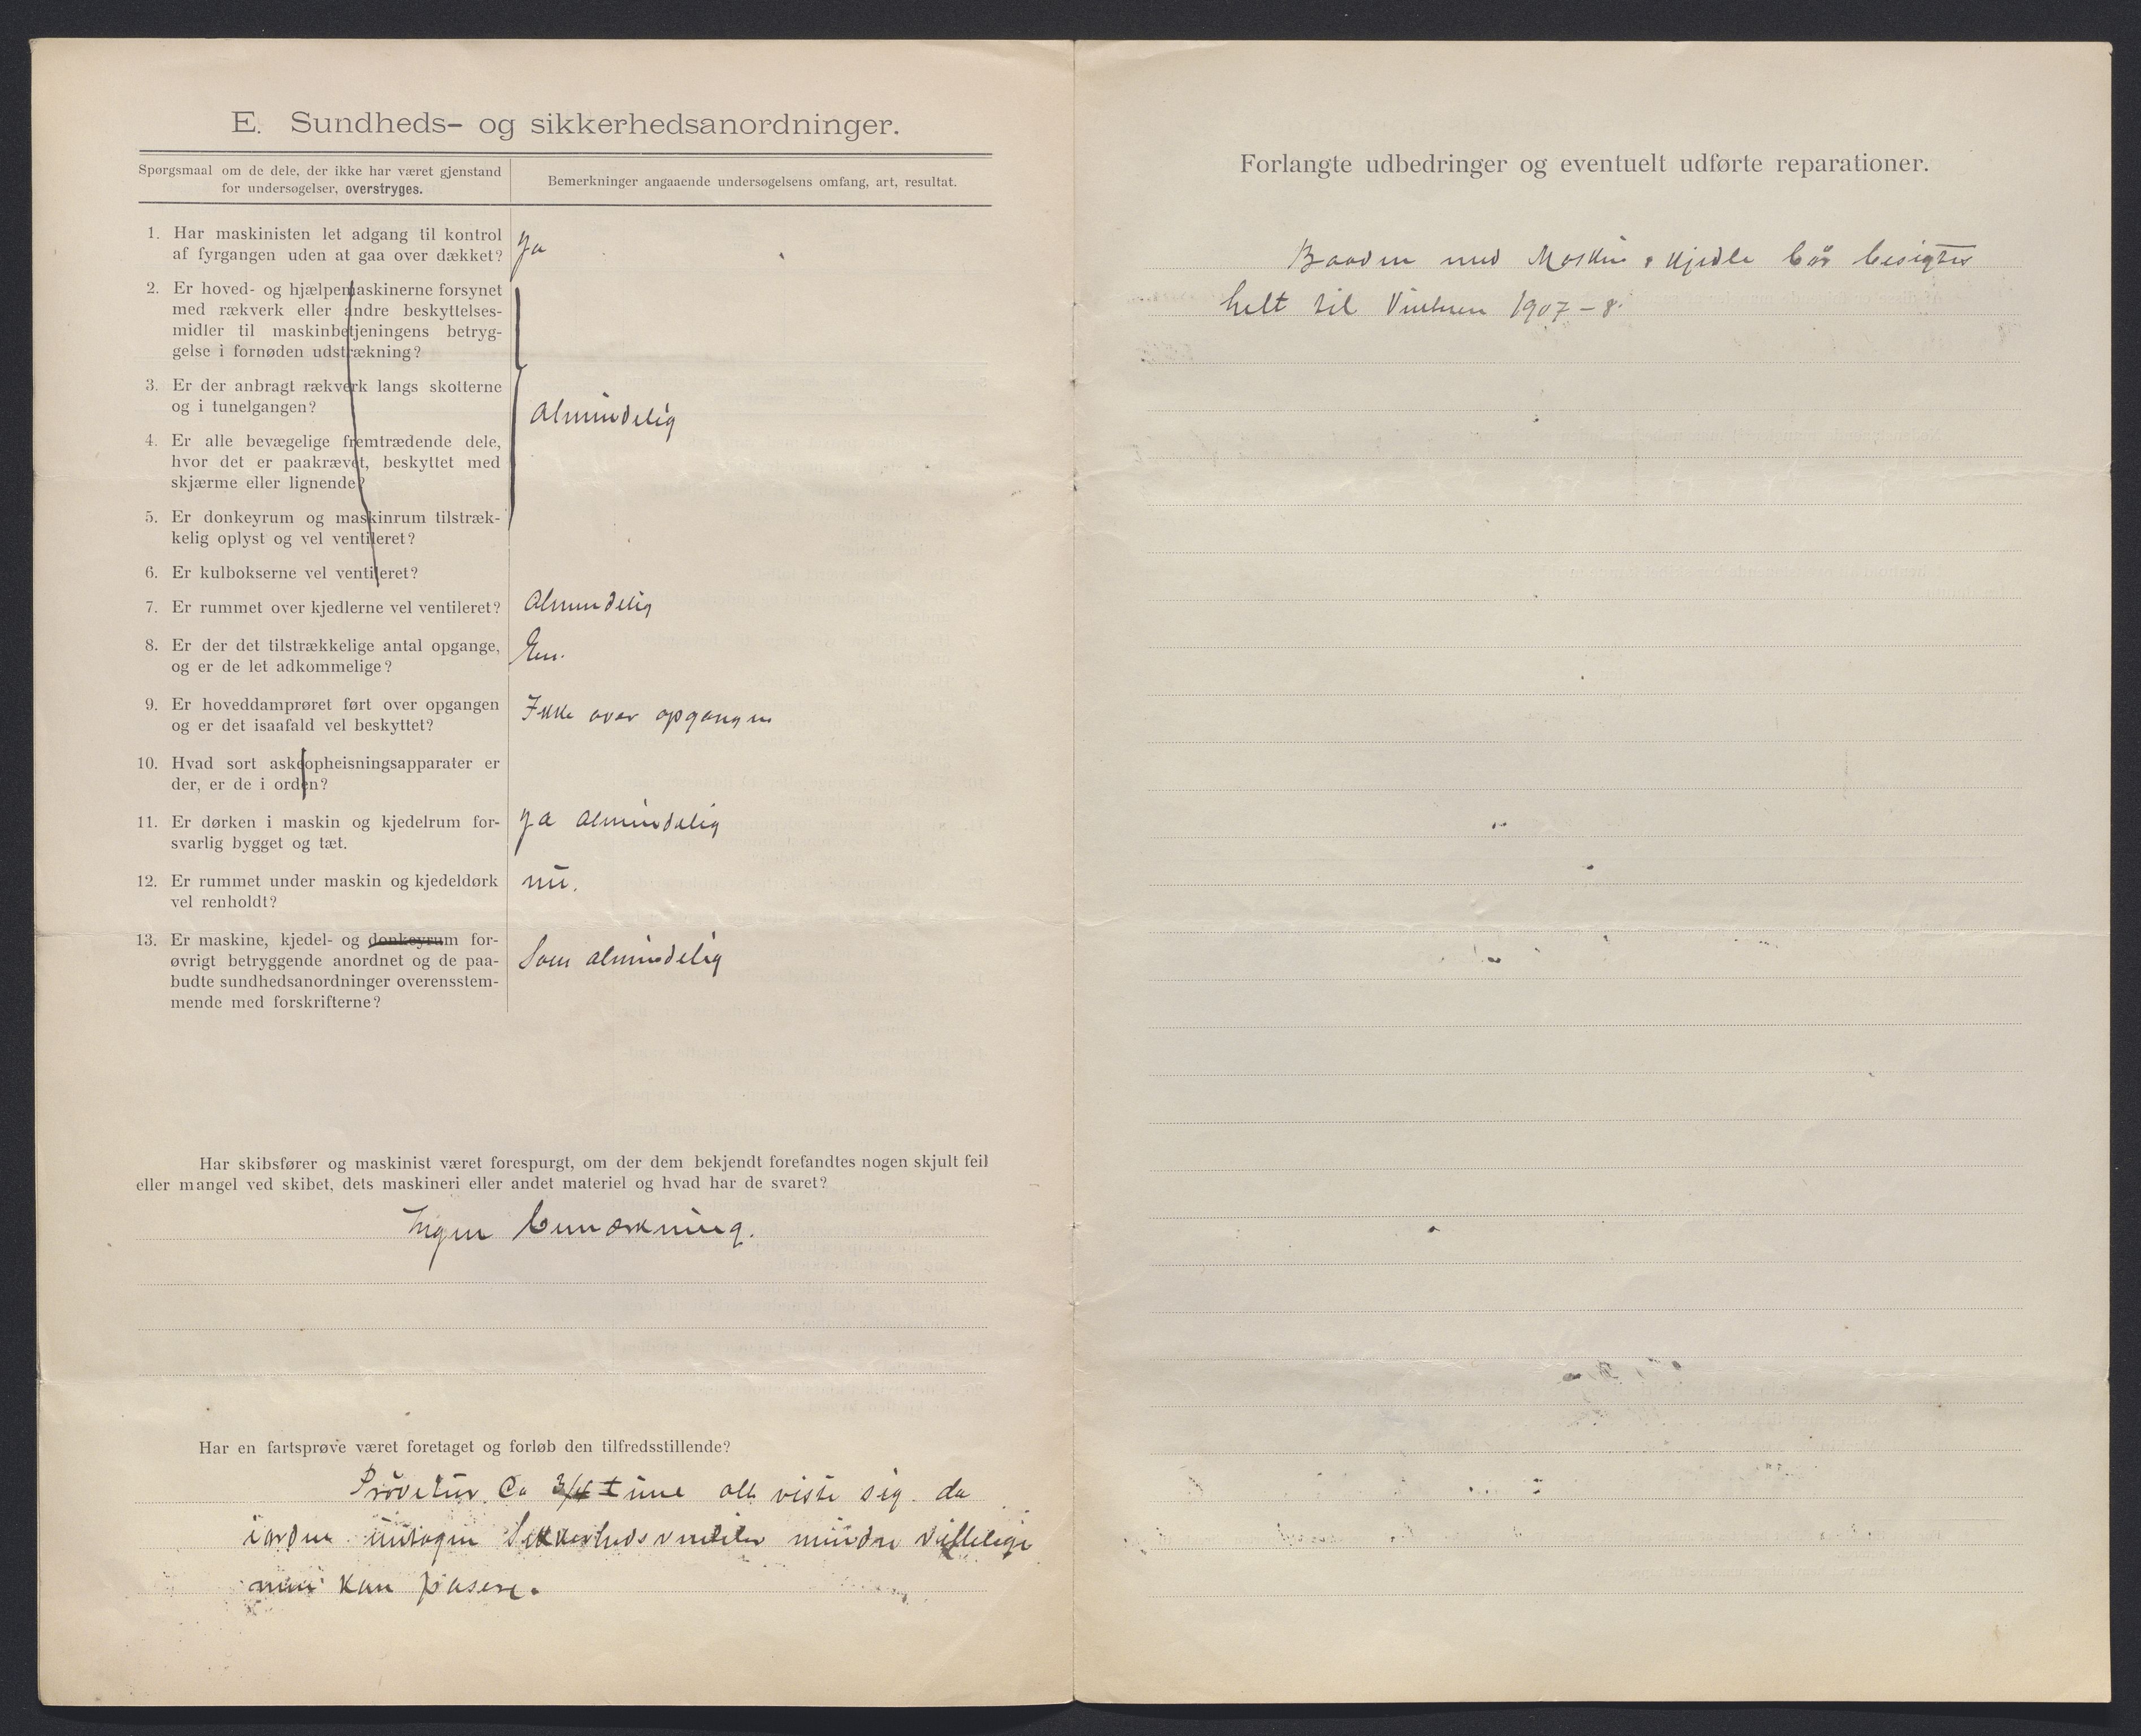 E. Sundheds- og sikkerhedsanordninger.
Spørgsmaal om de dele, der ikke har været gjenstand
for undersøgelser, overstryges.
Bemerkninger angaaende undersøgelsens omfang, art, resultat.
1. Har maskinisten let adgang til kontrol
af fyrgangen uden at gaa over dækket?
Ja
2. Er hoved- og hjælpemaskinerne forsynet
med rækverk eller andre beskyttelses-
midler til maskinbetjeningens betryg-
gelse i fornøden udstrækning?
3. Er der anbragt rækverk langs skotterne
og i tunelgangen?
Almindelig
4. Er alle bevægelige fremtrædende dele,
hvor det er paakrævet, beskyttet med
skjærme eller lignende?
5. Er donkeyrum og maskinrum tilstræk-
kelig oplyst og vel ventileret?
6. Er kulbokserne vel ventileret?
7. Er rummet over kjedlerne vel ventileret?
Almindelig
8. Er der det tilstrækkelige antal opgange,
og er de let adkommelige?
En.
9. Er hoveddamprøret ført over opgangen
og er det isaafald vel beskyttet?
Ikke over opgangen
10. Hvad sort askeopheisningsapparater er
der, er de i orden?
11. Er dørken i maskin og kjedelrum for-
svarlig bygget og tæt.
Ja almindelig
12. Er rummet under maskin og kjedeldørk
vel renholdt?
nu.
13. Er maskine, kjedel- og donkeyrum for-
øvrigt betryggende anordnet og de paa-
budte sundhedsanordninger overensstem-
mende med forskrifterne?
Som almindelig
Har skibsfører og maskinist været forespurgt, om der dem bekjendt forefandtes nogen skjult feil
eller mangel ved skibet, dets maskineri eller andet materiel og hvad har de svaret?
Ingen bemærkning.
Har en fartsprøve været foretaget og forløb den tilfredsstillende?
Prøvetur. Ca 3/4 time alt viste sig da
iorden undtagen Sikkerhedsventiler mindre
men kan pasere.
Forlangte udbedringer og eventuelt udførte reparationer.
Baaden med Maskin & Kjedle bør besigtes
helt til Vinteren 1907-8.